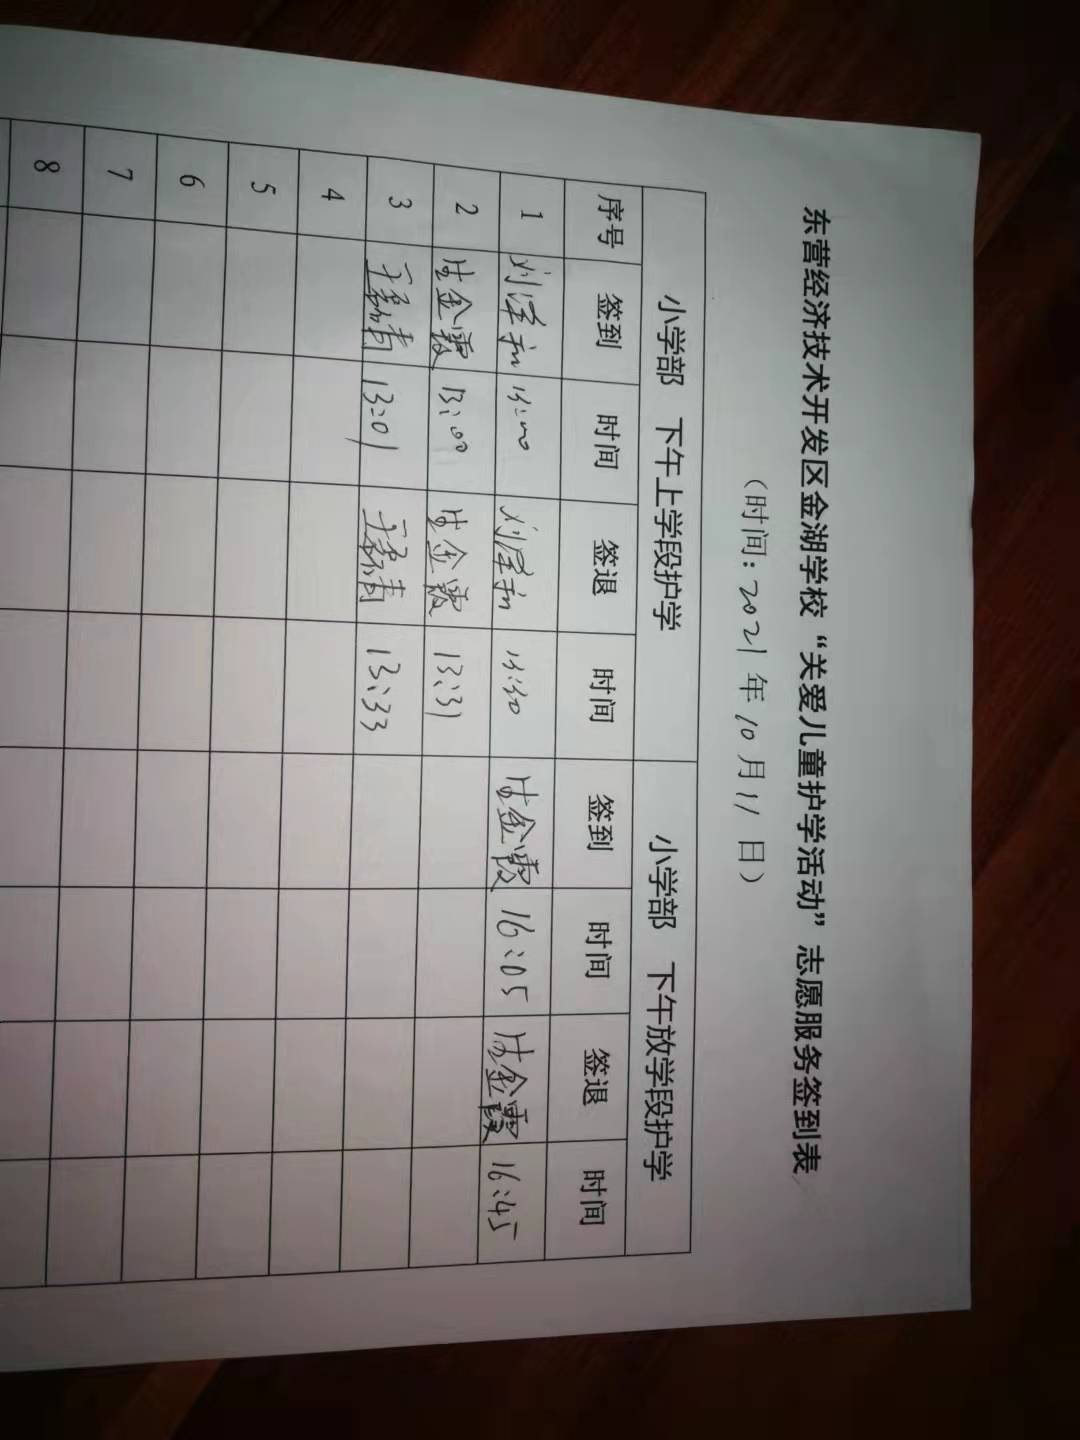 东营经济技术开发区金湖学校“关爱儿童护学活动”志愿服务签到表
（时间：2021年10月11日）
小学部 下午上学段护学 小学部 下午放学段护学
序号 签到 时间 签退 时间 签到 时间 签退 时间
1 刘泽和 13:00 刘泽和 13:30 生金霞 16:05 生金霞 16:45
2 生金霞 13:00 生金霞 13:31
3 13:01 13:33
4
5
6
7
8